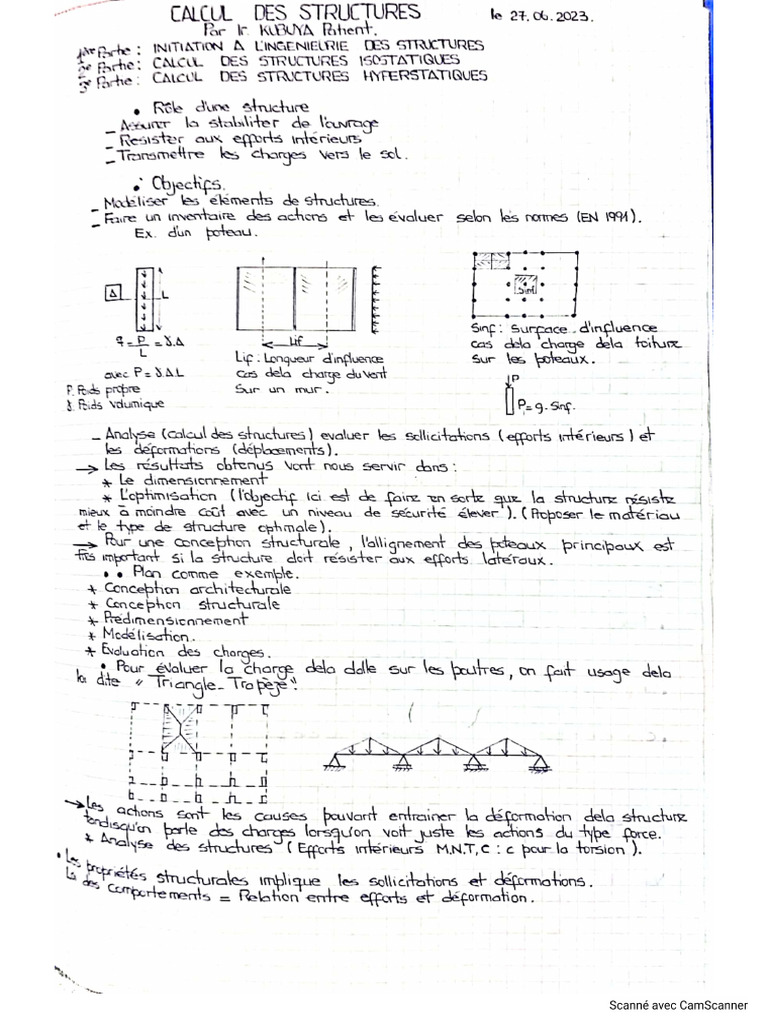 CALCUL DES STRUCTURES le 27.06.2023.
Par Ir. KUBUYA Patient.
1ère Partie : INITIATION A L'INGENIEURIE DES STRUCTURES
2e Partie : CALCUL DES STRUCTURES ISOSTATIQUES
3e Partie : CALCUL DES STRUCTURES HYPERSTATIQUES
• Rôle d'une structure
- Assurer la stabiliter de l'ouvrage
- Resister aux efforts intérieurs
- Transmettre les charges vers le sol.
• Objectifs.
- Modéliser les élements de structures.
- Faire un inventaire des actions et les évaluer selon les normes (EN 1991).
Ex. d'un poteau.
Δ L
q = P/L = γ.Δ
avec P = γ.Δ.L
P. Poids propre
γ. Poids volumique
Lif
Lif : Longueur d'influence
cas dela charge du vent
sur un mur.
Sinf
Sinf : Surface d'influence
cas dela charge dela toiture
sur les poteaux.
P
P = q.Sinf.
- Analyse (calcul des structures) evaluer les sollicitations (efforts intérieurs) et
les déformations (déplacements).
→ Les résultats obtenus vont nous servir dans :
* Le dimensionnement
* L'optimisation (l'objectif ici est de faire en sorte que la structure résiste
mieux à moindre coût avec un niveau de sécurité élever). (Proposer le matériau
et le type de structure optimale).
→ Pour une conception structurale, l'allignement des poteaux principaux est
très important si la structure doit résister aux efforts latéraux.
• • Plan comme exemple.
* Conception architecturale
* Conception structurale
* Prédimensionnement
* Modélisation.
* Evaluation des charges.
• Pour évaluer la charge dela dalle sur les poutres, on fait usage dela
la dite " Triangle-Trapèze".
→ Les actions sont les causes pouvant entrainer la déformation dela structure
tandisqu'on parle des charges lorsqu'on voit juste les actions du type force.
* Analyse des structures (Efforts intérieurs M.N.T,C : c pour la torsion).
• Les propriétés structurales implique les sollicitations et déformations.
des comportements = Relation entre efforts et déformation.
Scanné avec CamScanner